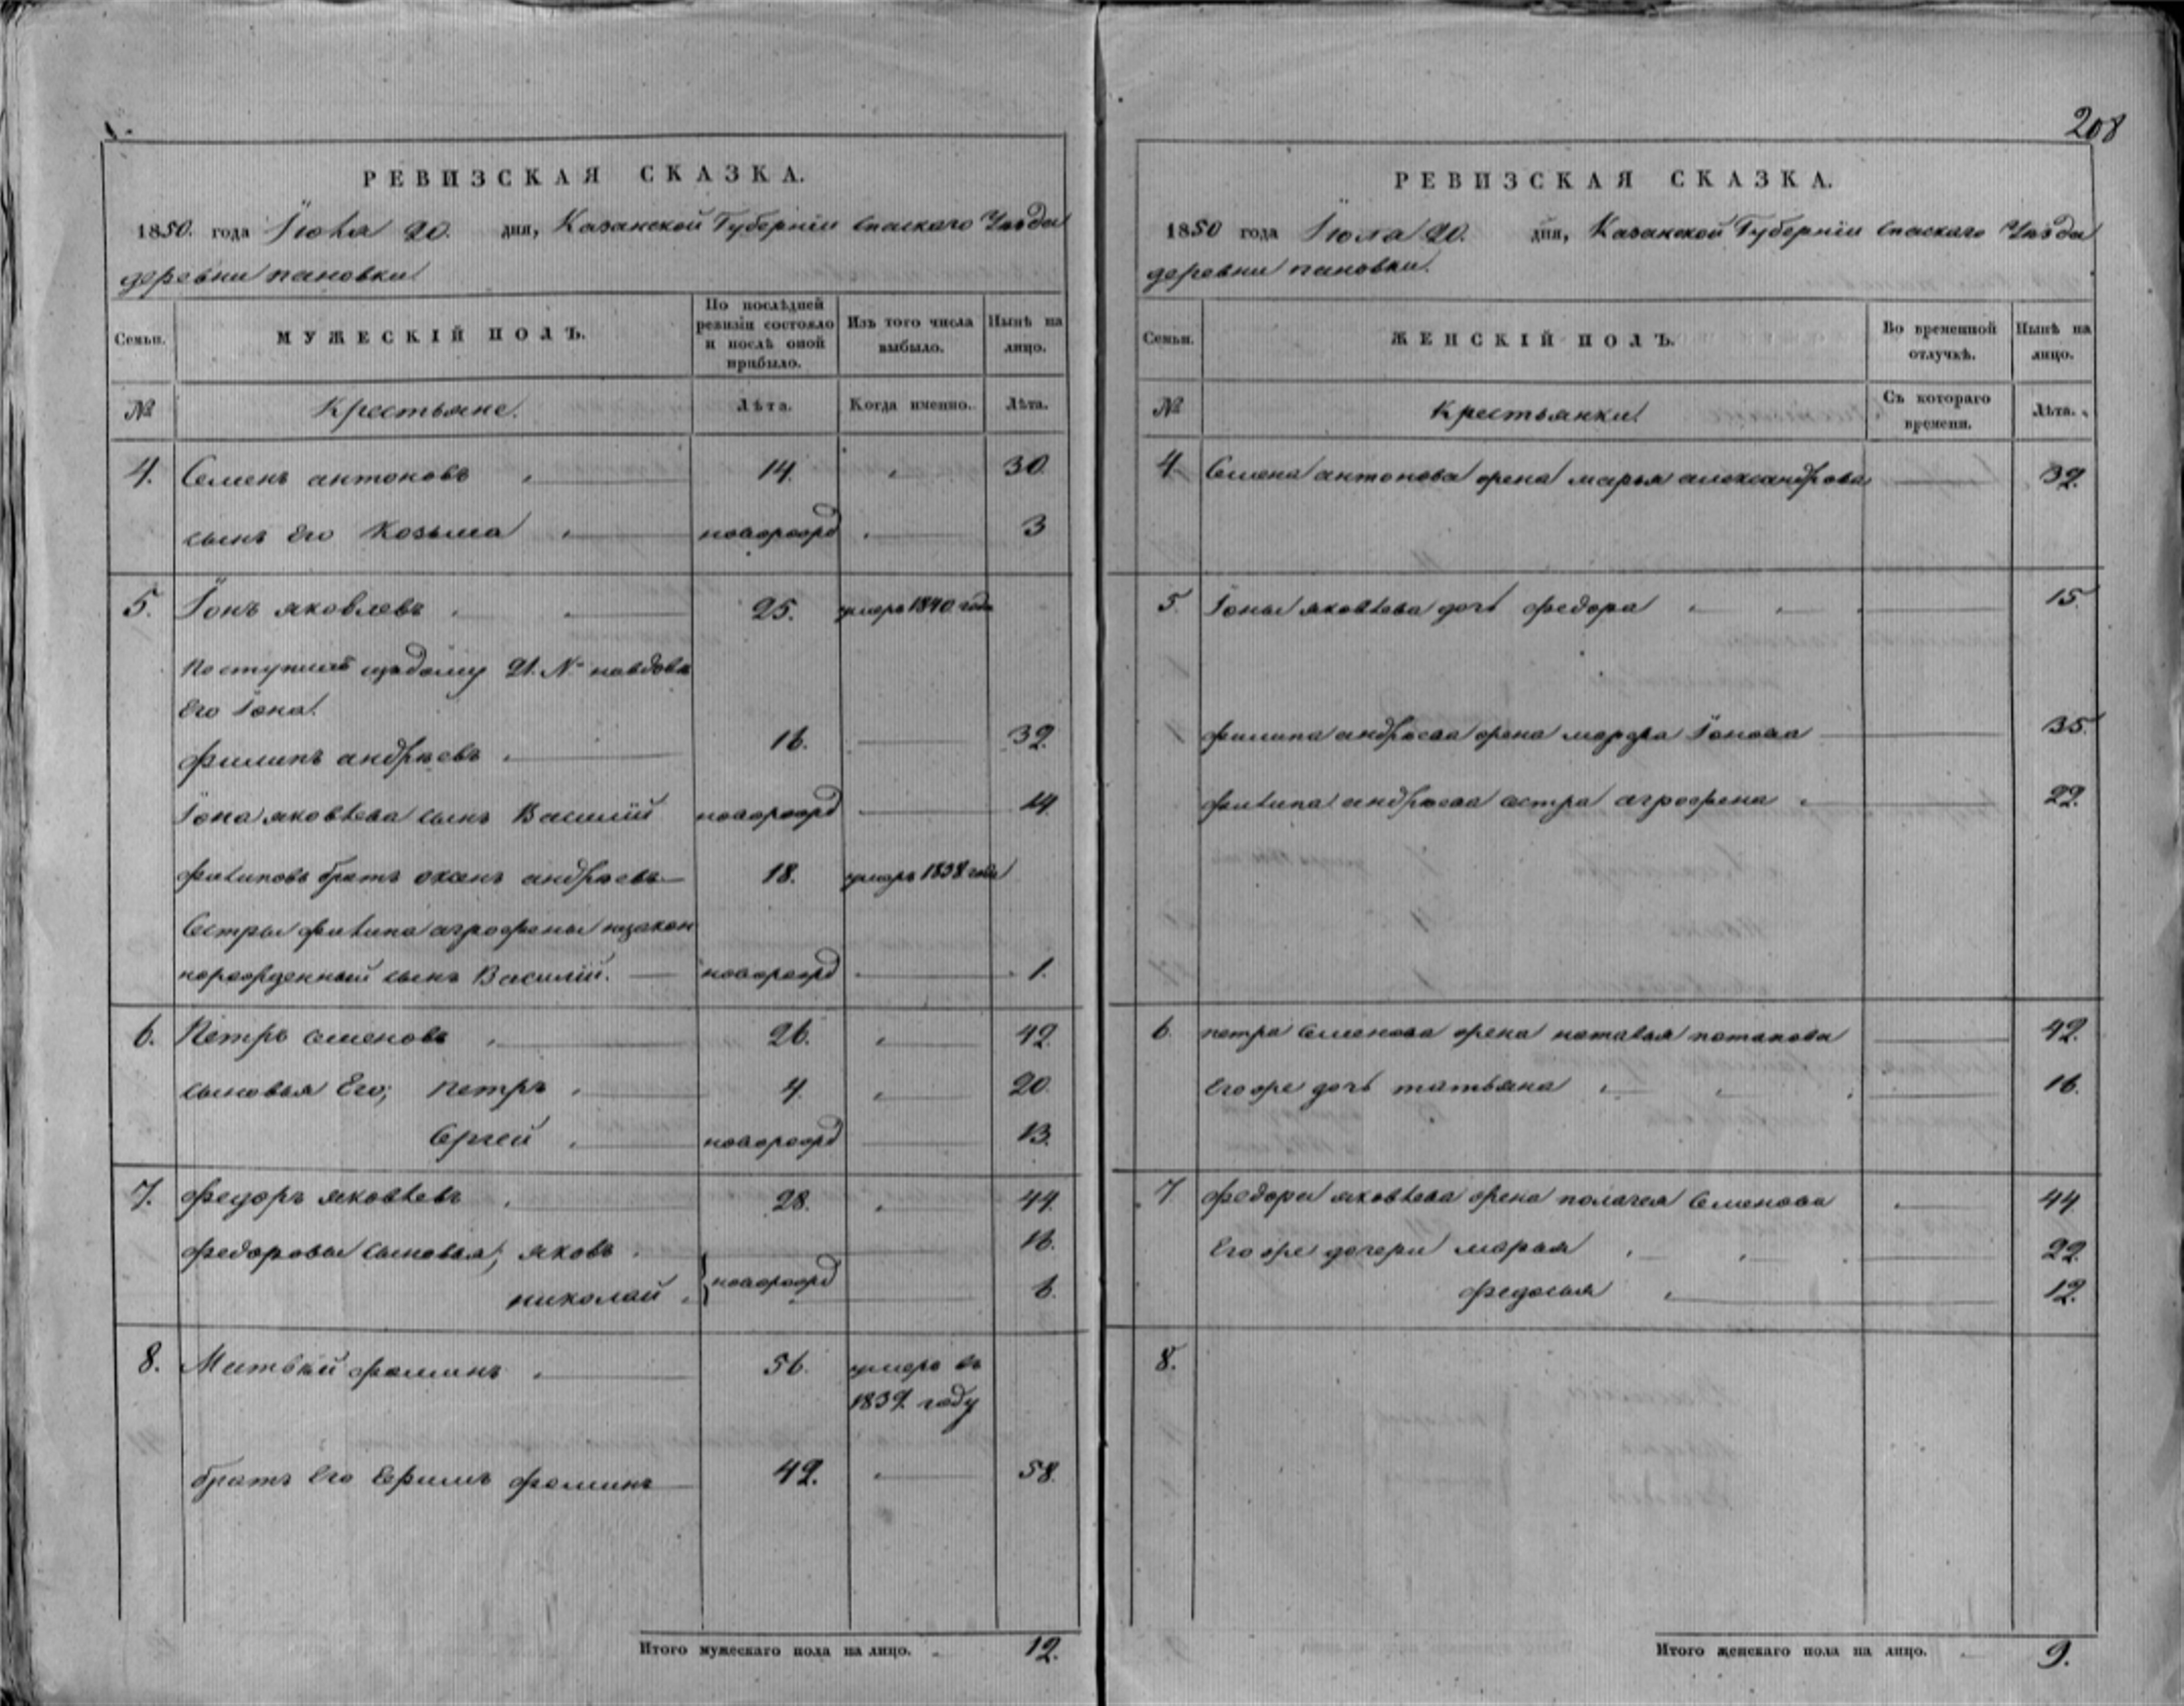 208
РЕВИЗСКАЯ СКАЗКА.
1850. года Іюля 20. дня, Казанской Губерніи спаскаго Уѣзда
деревни пановки
Семьи. МУЖЕСКІЙ ПОЛЪ. По послѣдней ревизіи состояло и послѣ оной прибыло. Изъ того числа выбыло. Нынѣ на лицо.
№ Крестьяне. Лѣта. Когда именно. Лѣта.
4. Семенъ антоновъ 14. 30
сынъ его Козьма новорожд 3
5. Іонъ яковлевъ 25. умеръ 1840 года
поступилъ 21. №
Его Іона
филипъ андрѣевъ 16. 32.
Іона яковлева сынъ Василій новорожд 14.
филиповъ братъ андрѣевъ 18. умеръ 1838 года
Сестры филипа агрофены незакон
норожденный сынъ Василій. новорожд 1.
6. Петръ семеновъ 26. 42
сыновья Его; петръ 4. 20.
Сергей новорожд 13.
7. федоръ яковлевъ 28. 44.
федоровы сыновья; яковъ 16.
николай новорожд 6.
8. Матвѣй фоминъ 56. умеръ въ
1839 году
братъ его Ефимъ фоминъ 42. 58.
Итого мужескаго пола на лицо. 12.
РЕВИЗСКАЯ СКАЗКА.
1850 года Іюля 20. дня, Казанской Губерніи спаскаго Уѣзда
деревни пановки.
Семьи. ЖЕНСКІЙ ПОЛЪ. Во временной отлучкѣ. Нынѣ на лицо.
№ Крестьянки Съ котораго времени. Лѣта.
4 Семена антонова жена марья александрова 32.
5. Іоны яковлева дочь федора 15.
филипа андрѣева жена Іонова 35.
филипа андрѣева сестра агрофена 22.
6. петра Семенова жена наталья потапова 42.
Его же дочь татьяна 16.
7. федора яковлева жена полагея Семенова 44
Его же дочери марья 22.
федосья 12.
8.
Итого женскаго пола на лицо. 9.